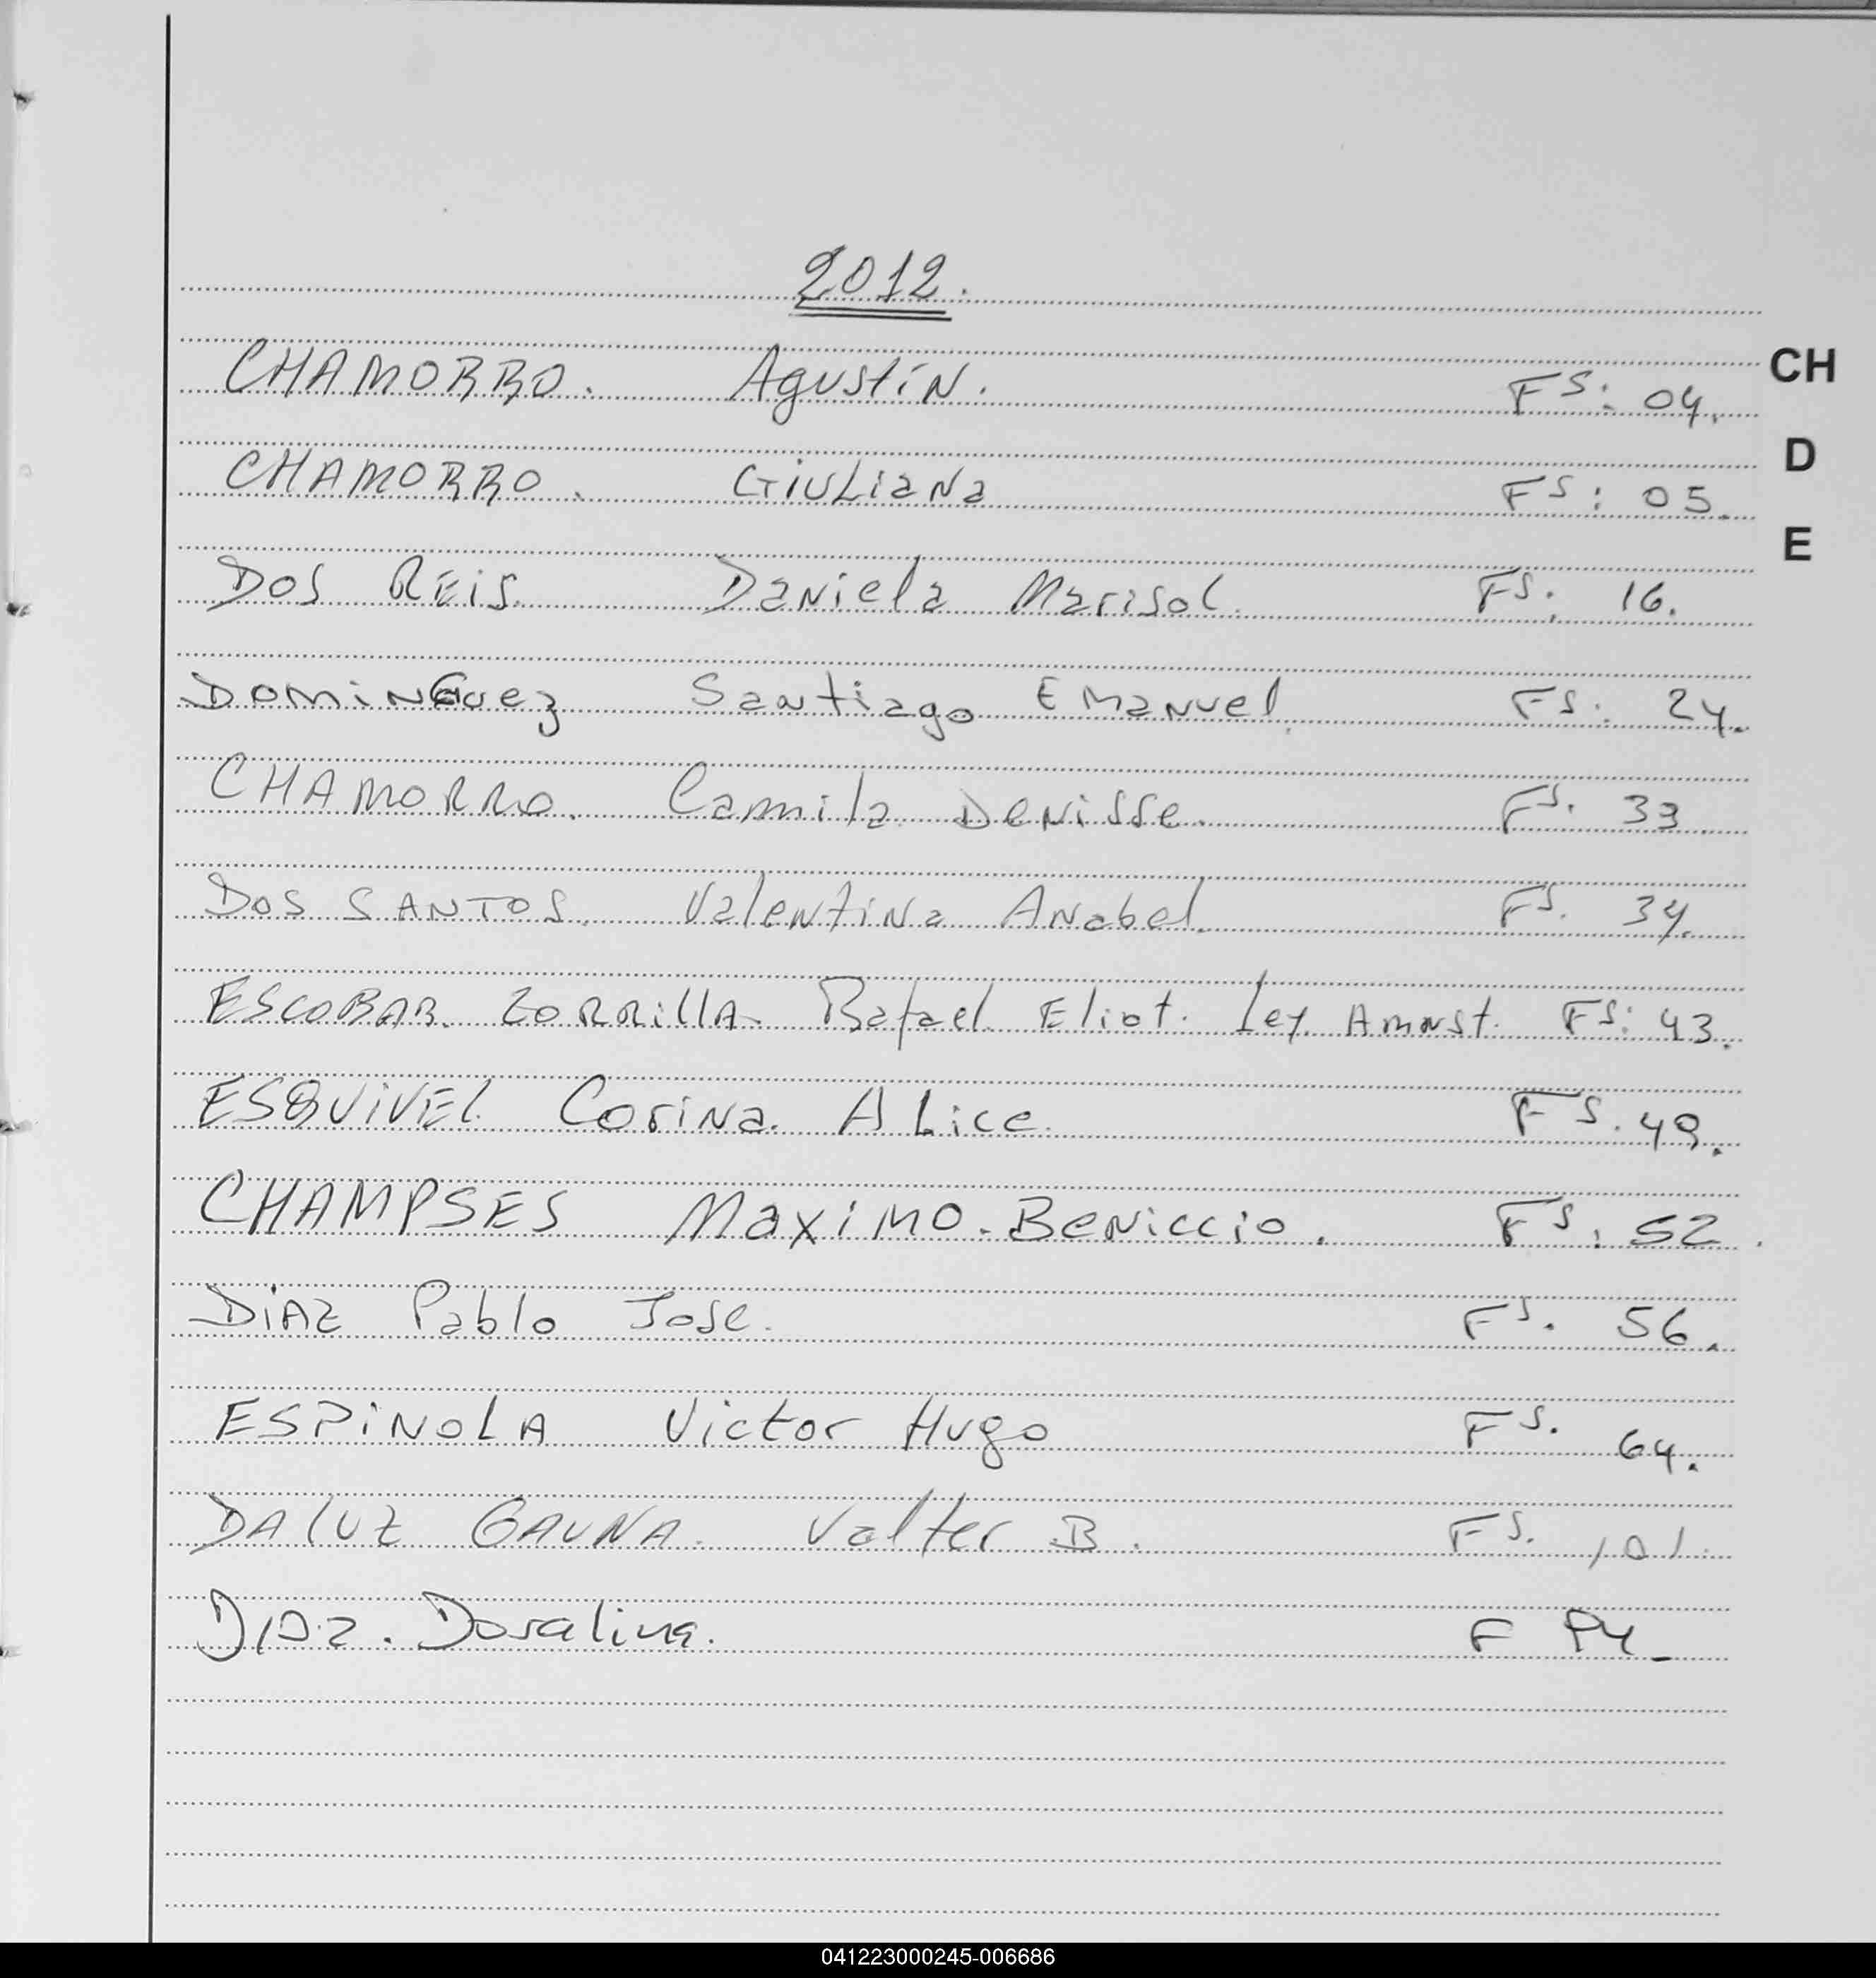 2012.
CHAMORRO. Agustin. FS: 04.
CH
CHAMORRO. Giuliana FS: 05.
D
E
DOS REis. Daniela Marisol. FS: 16.
DominGuez Santiago Emanuel. FS. 24.
CHAMORRO. Camila Denisse. FS. 33
DOS SANTOS. Valentina Anabel. FS. 34.
ESCOBAR ZORRillA Rafael Eliot. Ley Amnst. FS: 43.
ESQUiVEL Corina. ALice. FS. 49.
CHAMPSES Maximo. Beniccio. FS: 52.
DiAZ Pablo Jose. FS. 56.
ESPiNOLA Victor Hugo FS. 64.
DA lUZ GAUNA. Valter B. FS. 101.
Diaz. Doralina. F
041223000245-006686